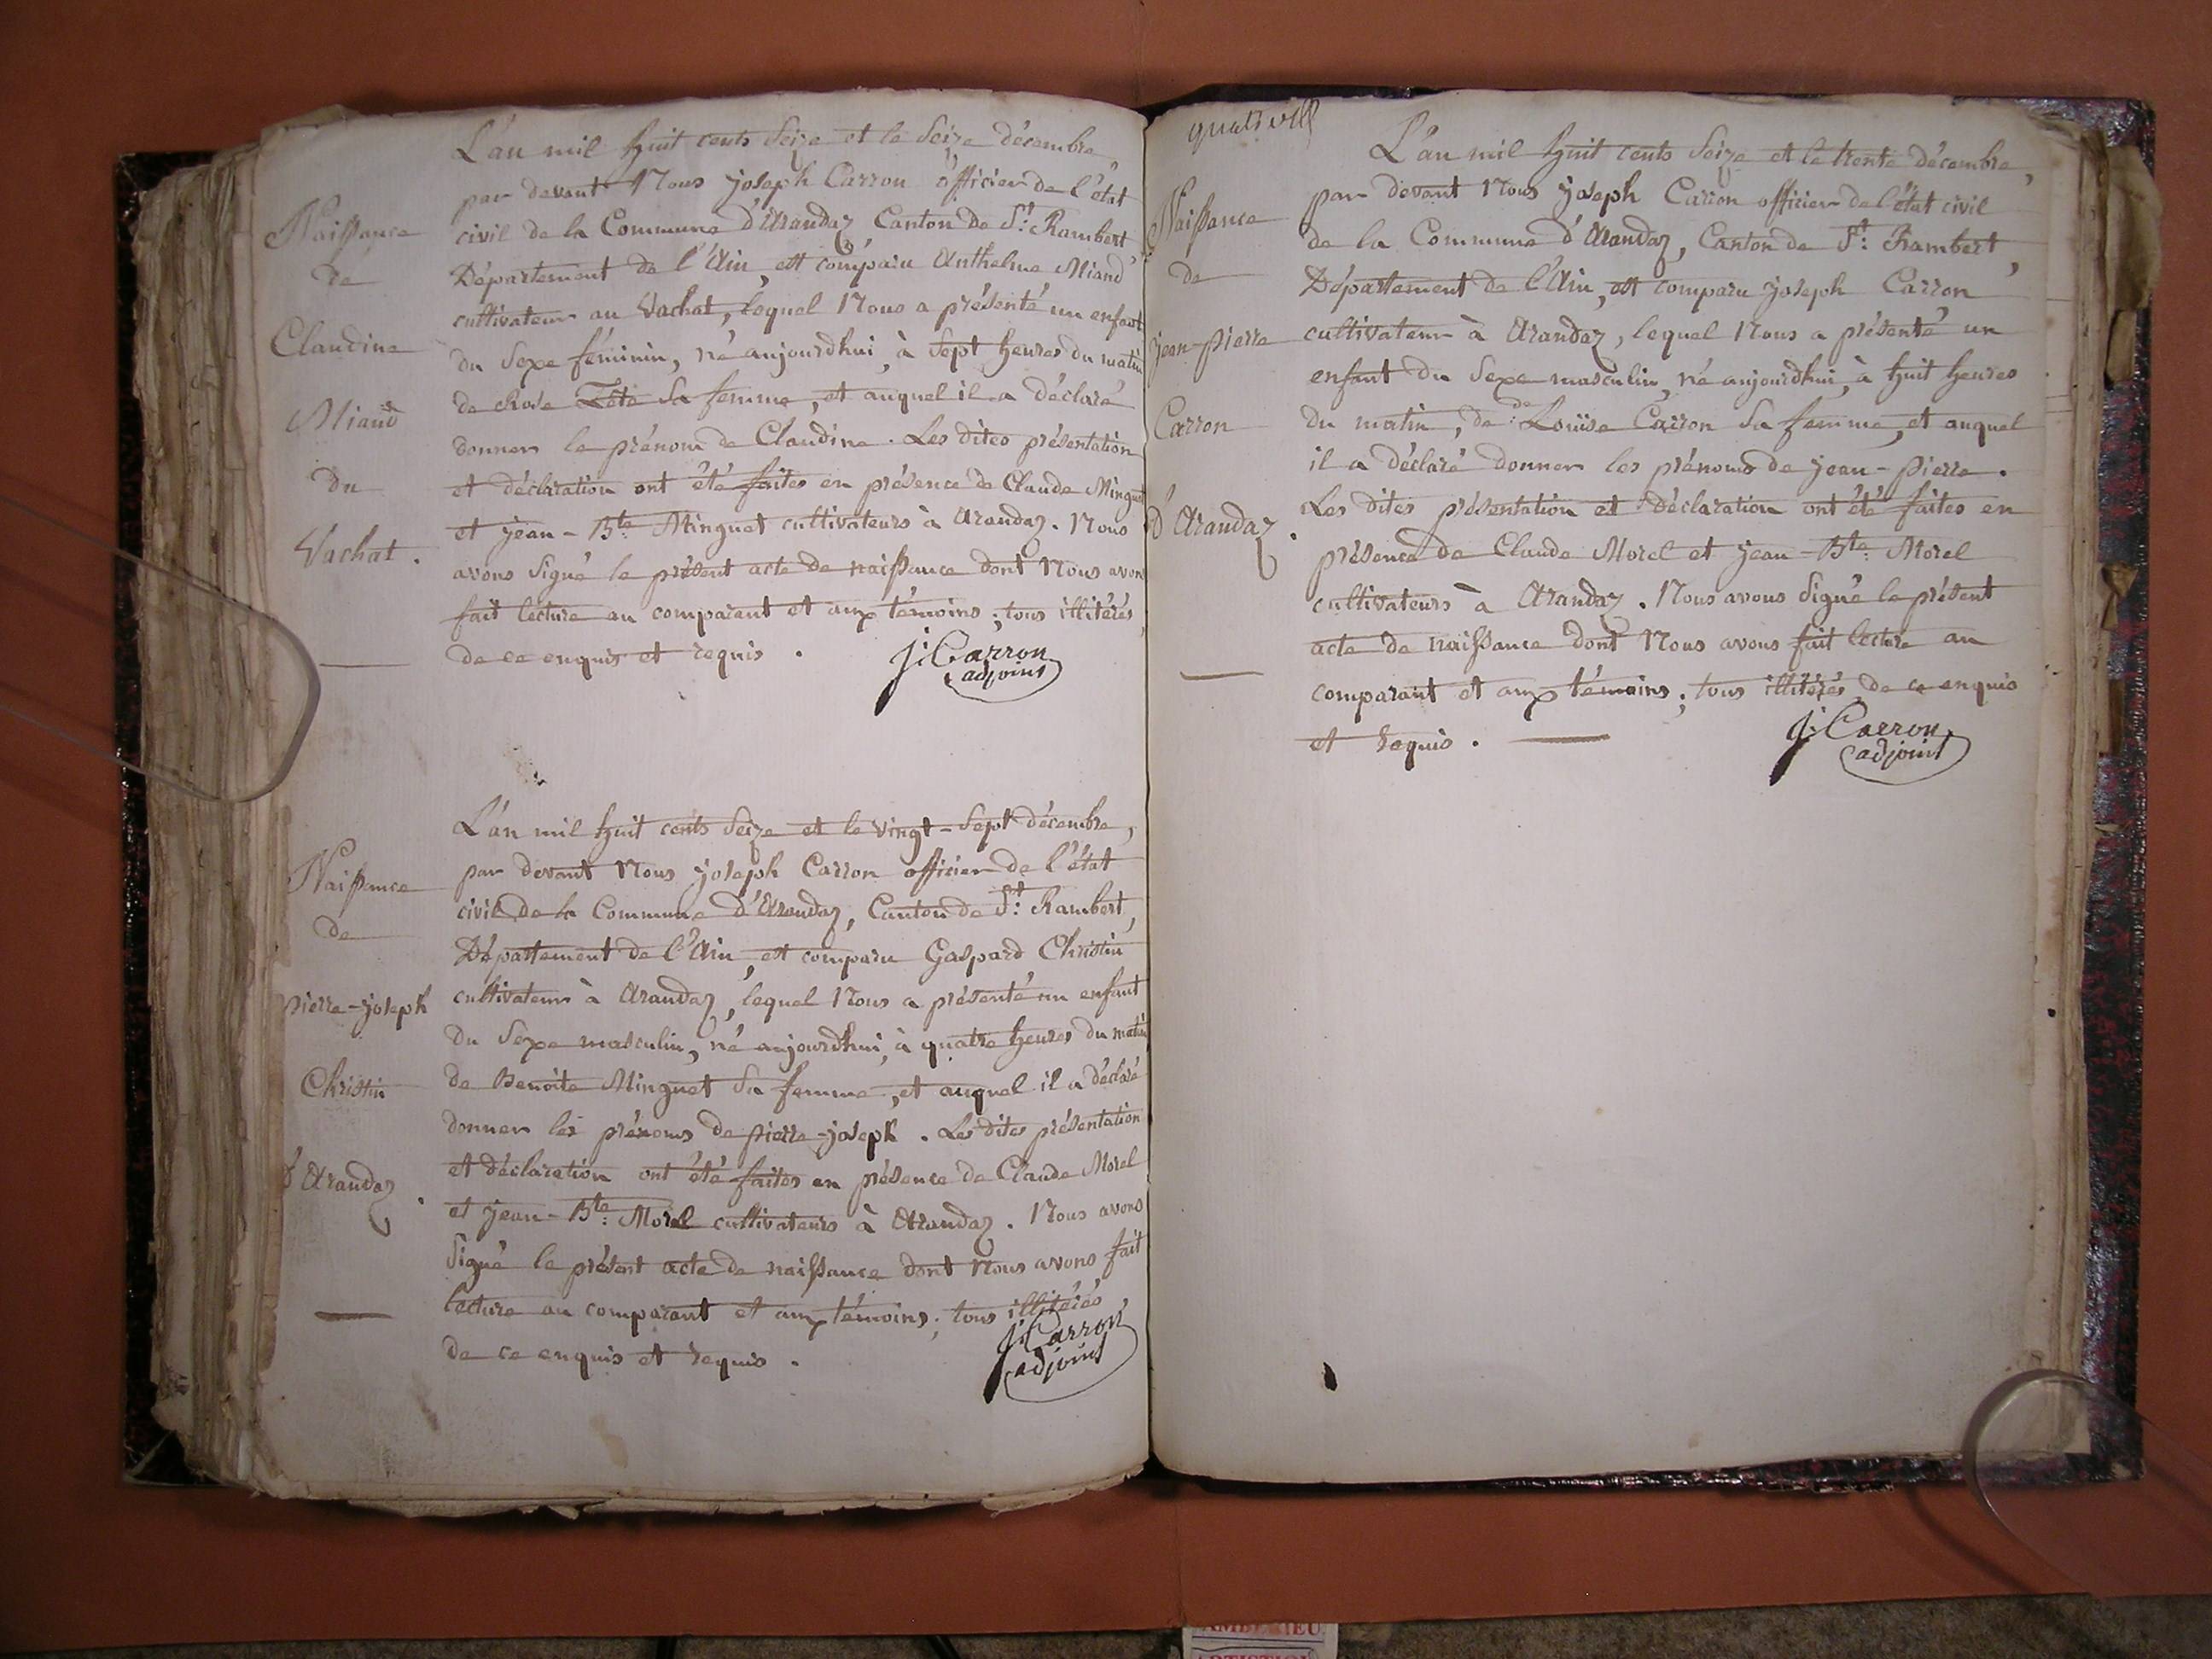 Naissance
de
Claudine
Miand
du
Vachat.
L'an mil huit cents Seize et le Seize décembre,
par devant Nous joseph Carron officier de l'état
civil de la Commune d'Arandaz Canton de St: Rambert,
Département de l'Ain, est comparu Anthelme Miand
cultivateur au Vachat, lequel Nous a présenté un enfant
du Sexe féminin, né aujourdhui, à Sept heures du matin
de Rose Tête Sa femme, et auquel il a déclaré
donner le prénom de Claudine. Les dites présentation
et déclaration ont été faites en présence de Claude Minguet
et jean-Bte: Minguet cultivateurs à Arandaz. Nous
avons Signé le présent acte de naissance dont Nous avons
fait lecture au comparant et aux témoins; tous illitérés,
de ce enquis et requis.
j: Carron
adjoint
Naissance
de
pierre-joseph
Christin
d'Arandaz.
L'an mil huit cents Seize et le vingt-Sept décembre,
par devant Nous joseph Carron officier de l'état
civil de la Commune d'Arandaz, Canton de St: Rambert,
Département de l'Ain, est comparu Gaspard Christin
cultivateur à Arandaz, lequel Nous a présenté un enfant
du Sexe masculin, né aujourdhui, à quatre heures du matin
de Benoite Minguet Sa femme, et auquel il a déclaré
donner les prénoms de pierre-joseph. Les dites présentation
et déclaration ont été faites en présence de Claude Morel
et jean-Bte: Morel cultivateurs à Arandaz. Nous avons
Signé le présent acte de naissance dont Nous avons fait
lecture au comparant et aux témoins; tous illitérés,
de ce enquis et requis.
j: Carron
adjoint
Naissance
de
jean-pierre
Carron
d'Arandaz.
L'an mil huit cents Seize et le trente décembre,
par devant Nous joseph Carron officier de l'état civil
de la Commune d'Arandaz, Canton de St: Rambert,
Département de l'Ain, est comparu joseph Carron
cultivateur à Arandaz, lequel Nous a présenté un
enfant du Sexe masculin, né aujourdhui, à huit heures
du matin, de Louïse Carron Sa femme, et auquel
il a déclaré donner les prénoms de jean-pierre.
Les dites présentation et déclaration ont été faites en
présence de Claude Morel et jean-Bte: Morel
cultivateurs à Arandaz. Nous avons Signé le présent
acte de naissance dont Nous avons fait lecture au
comparant et aux témoins; tous illitérés de ce enquis
et requis.
j: Carron
adjoint